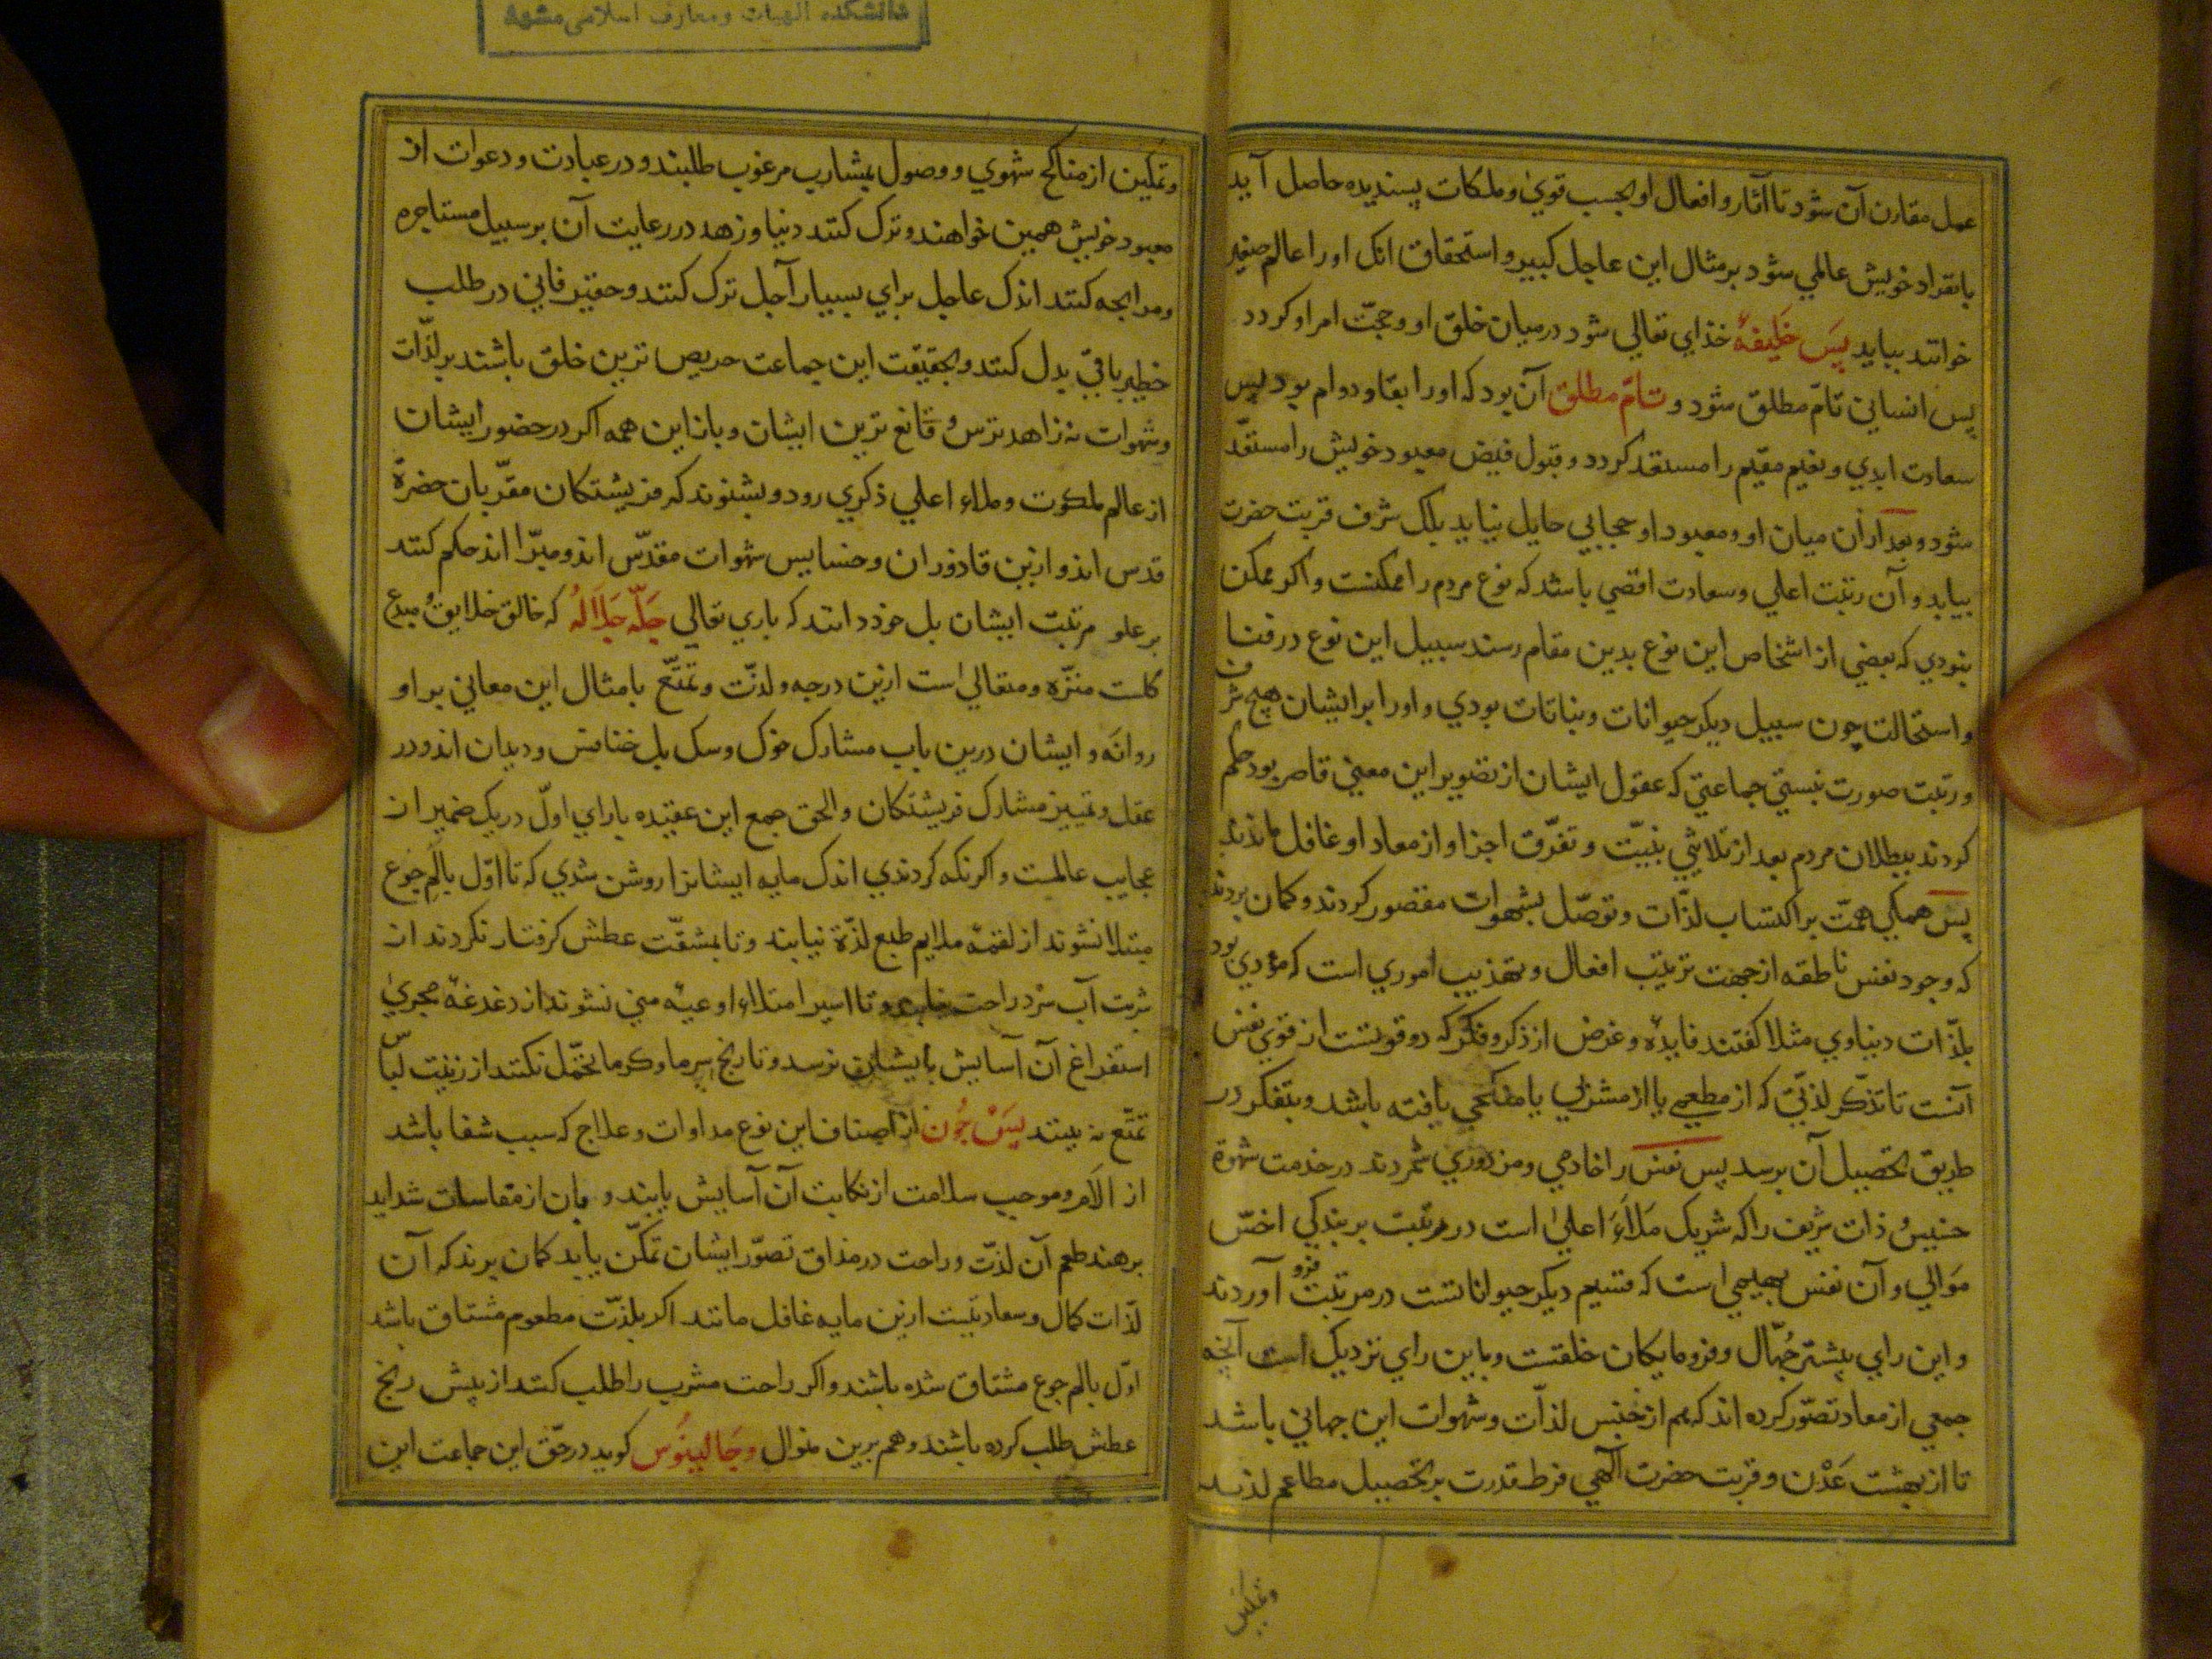 عمل مقارن آن شود تا آثار و افعال او بحسب قوی و ملکات پسندیده حاصل آید
بانفراد خویش عالمی شود بر مثال این عاجل کبیر و استحقاق انک او را عالم صغیر
خوانند بیابد پس خلیفهٔ خدای تعالی شود در میان خلق او و حجت امر او کردد
پس انسانی تام مطلق شود و تام مطلق آن بود که او را بقا و دوام بود پس
سعادت ابدی و نعیم مقیم را مستعد کردد و قبول فیض معبود خویش را مستعد
شود و بعد از آن میان او و معبود او حجابی حایل نیاید بلک شرف قربت حضرت
بیابد و آن رتبت اعلی و سعادت اقصی باشد که نوع مردم را ممکنست و اکر ممکن
نبودی که بعضی از اشخاص این نوع بدین مقام رسند سبیل این نوع در فنا
و استحالت چون سبیل دیکر حیوانات و نباتات بودی و او را بر ایشان هیچ شرف
و رتبت صورت نبستی جماعتی که عقول ایشان از تصویر این معنی قاصر بود حکم
کردند ببطلان مردم بعد از تلاشی بنیت و تفرق اجزا و از معاد او غافل ماندند
پس همکی همت بر اکتساب لذات و توصل بشهوات مقصور کردند و کمان بردند
که وجود نفس ناطقه از جهت ترتیب افعال و تهذیب اموری است که مؤدی بود
بلذات دنیاوی مثلا کفتند فایده و غرض از ذکر و فکر که دو قوتست از قوی نفس
آنست تا تذکر لذتی که از مطعمی یا از مشربی یا منکحی یافته باشد و بتفکر در
طریق تحصیل آن برسد پس نفس را خادمی و مزدوری شمردند در خدمت شهوة
خسیس و ذات شریف را که شریک ملاء اعلی است در مرتبت بر بندکی اخس
موالی و آن نفس بهیمی است که قسیم دیکر حیواناتست در مرتبت فرو آوردند
و این رای بیشتر جهال و فرومایکان خلقتست و باین رای نزدیک است آنچه
جمعی از معاد تصور کرده اند که هم از جنس لذات و شهوات این جهانی باشد
تا از بهشت عدن و قربت حضرت الهی فرط قدرت بر تحصیل مطاعم لذیذ
وتمکین
و تمکین از مناکح شهوی و وصول بمشارب مرغوب طلبند و در عبادت و دعوات از
معبود خویش همین خواهند و ترک کنند دنیا و زهد در رعایت آن بر سبیل مستاجره
و مرابحه کنند اندک عاجل برای بسیار آجل ترک کنند و حقیر فانی در طلب
خطیر باقی بدل کنند و بحقیقت این جماعت حریص ترین خلق باشند بر لذات
و شهوات نه زاهد ترس و قانع ترین ایشان و با این همه اکر در حضور ایشان
از عالم ملکوت و ملاء اعلی ذکری رود و بشنوند که فریشتکان مقربان حضرة
قدس اند و ازین قاذوران و خسایس شهوات مقدس اند و مبرا اند حکم کنند
بر علو مرتبت ایشان بل خود دانند که باری تعالی جله جلاله که خالق خلایق و مبدع
کلست منزه و متعالی است ازین درجه و لذت و تمتع بامثال این معانی بر او
روا نه و ایشان درین باب مشارک خوک و سک بل خنافس و دیدان اند و در
عقل و تمییز مشارک فریشتکان و الحق جمع این عقیده با رای اول در یک ضمیر از
عجایب عالمست و اکر نکه کردندی اندک مایه ایشانرا روشن شدی که تا اول بالم جوع
مبتلا نشوند از لقمهٔ ملایم طبع لذة نیابند و تا بمشقت عطش کرفتار نکردند از
شربت آب سرد راحت نیابند و تا اسیر امتلاء اوعیهٔ منی نشوند از دغدغهٔ مجری
استفراغ آن آسایش بایشان نرسد و تا رنج سرما و کرما تحمل نکنند از زینت لبا
تمتع نه بینند پس چون از اصناف این نوع مداوات و علاج که سبب شفا باشد
از الام و موجب سلامت از نکایت آن آسایش یابند و بان از مقاسات شداید
برهند طعم آن لذت و راحت در مذاق تصور ایشان تمکن یابد کمان برند که آن
لذات کمال و سعادتیست ازین مایه غافل مانند اکر بلذت مطعوم مشتاق باشد
اول بالم جوع مشتاق شده باشند و اکر راحت مشرب را طلب کنند از پیش رنج
عطش طلب کرده باشند و هم برین منوال و جالینوس کوید در حق این جماعت این
دانشکده الهیات و معارف اسلامی مشهد